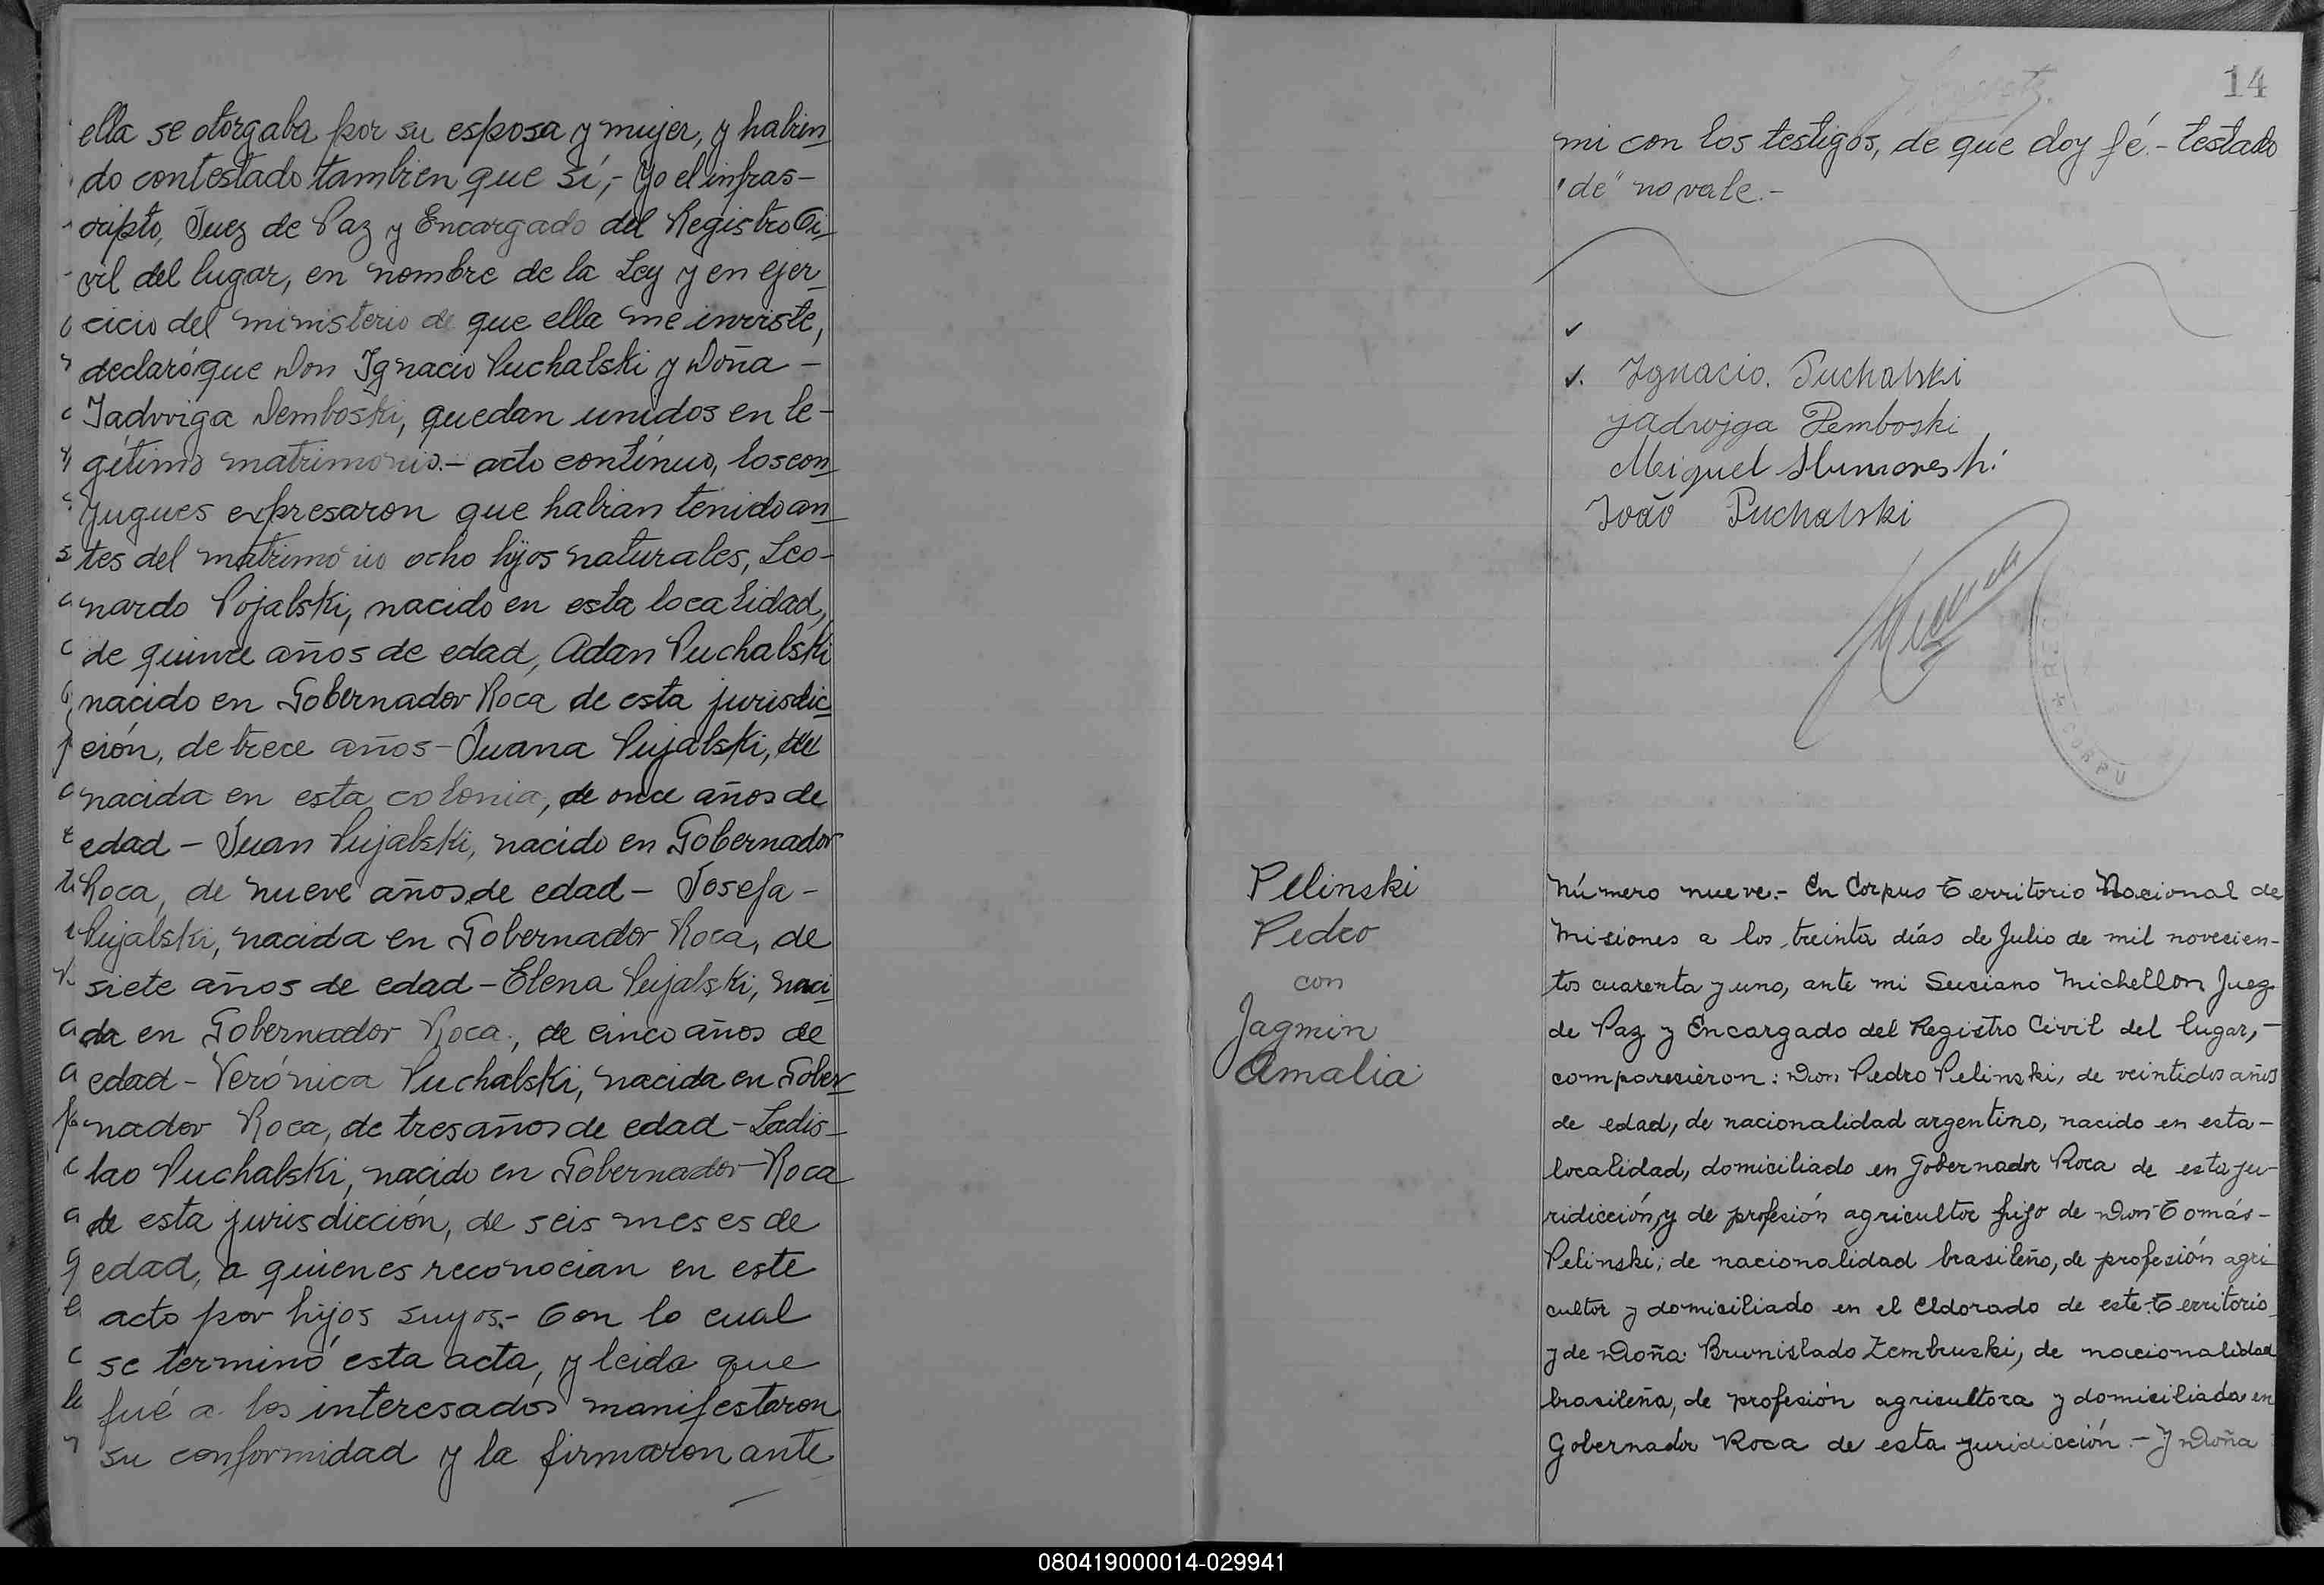 ella se otorgaba por su esposa y mujer, y habien
do contestado tambien que sí,- Yo el infras-
cripto, Juez de Paz y Encargado del Registro Ci-
vil del lugar, en nombre de la Ley y en ejer
cicio del ministerio de que ella me inviste,
declaró que Don Ignacio Puchalski y Doña -
Jadvviga Demboski, quedan unidos en le-
gítimo matrimonio.- acto contínuo, los con
yugues expresaron que habian tenido an
tes del matrimonio ocho hijos naturales, Leo-
nardo Pojalski, nacido en esta localidad,
de quince años de edad, Adan Puchalski
nacido en Gobernador Roca de esta jurisdic
ción, de trece años - Juana Pujalski, de
nacida en esta colonia, de once años de
edad - Juan Pujalski, nacido en Gobernador
Roca, de nueve años de edad - Josefa -
Pujalski, nacida en Gobernador Roca, de
siete años de edad - Elena Pujalski, naci
da en Gobernador Roca, de cinco años de
edad - Verónica Puchalski, nacida en Gober
nador Roca, de tres años de edad - Ladis-
lao Puchalski, nacido en Gobernador Roca
de esta jurisdicción, de seis meses de
edad, a quienes reconocian en este
acto por hijos suyos.- Con lo cual
se terminó esta acta, y leida que
fué a los interesados manifestaron
su conformidad y la firmaron ante
14
mi con los testigos, de que doy fé.- testado
"de" no vale.-
Ignacio. Puchalski
Jadwjga Demboski
Meiguel
João Puchalski
CORPU
Pelinski
Pedro
con
Jagmin
Amalia
Número nueve.- En Corpus Territorio Nacional de
Misiones a los treinta días de Julio de mil novecien-
tos cuarenta y uno, ante mi Luciano Michellon Juez
de Paz y Encargado del Registro Civil del lugar, -
comparecieron: Don Pedro Pelinski, de veintidos años
de edad, de nacionalidad argentino, nacido en esta -
localidad, domiciliado en Gobernador Roca de esta ju-
ridicción, y de profesión agricultor hijo de Don Tomás -
Pelinski; de nacionalidad brasileño, de profesión agri
cultor y domiciliado en el Eldorado de este Territorio
y de Doña Brunislado Zembruski, de nacionalidad
brasileña, de profesión agricultora y domiciliada en
Gobernador Roca de esta juridicción.- Y Doña
080419000014-029941